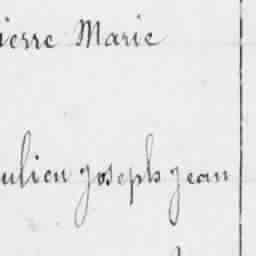 ierre Marie
ulien Joseph Jean